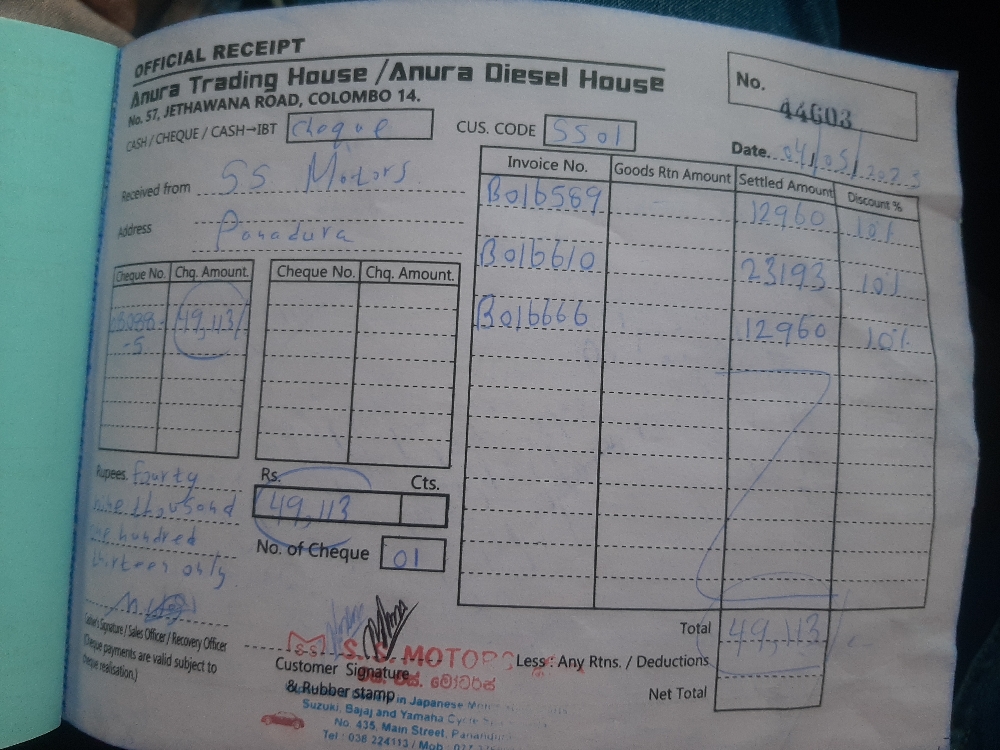 OFFICIAL RECEIPT
Anura Trading House / Anura Diesel House
No. 57, JETHAWANA ROAD, COLOMBO 14.
No. 44603
CASH / CHEQUE / CASH→IBT Cheque
CUS. CODE SS01
Date. 04/05/2023
Received from SS Motors
Address Panadura
Invoice No. Goods Rtn Amount Settled Amount Discount %
B016589 12960 10%
B016610 23193 10%
B016666 12960 10%
Cheque No. Chq. Amount. Cheque No. Chq. Amount.
49,113/
-5
Rupees. fourty
nine thousand
one hundred
thirteen only
Rs. Cts.
49,113
No. of Cheque 01
Total 49,113/
Less : Any Rtns. / Deductions
Net Total
Signature / Sales Officer / Recovery Officer
Cheque payments are valid subject to
realisation.)
Customer Signature
& Rubber stamp
S.S. MOTORS
එස්. එස්. මෝටර්ස්
in Japanese
Suzuki, Bajaj and Yamaha
No. 435, Main Street,
Tel : 038 224113 / Mob :